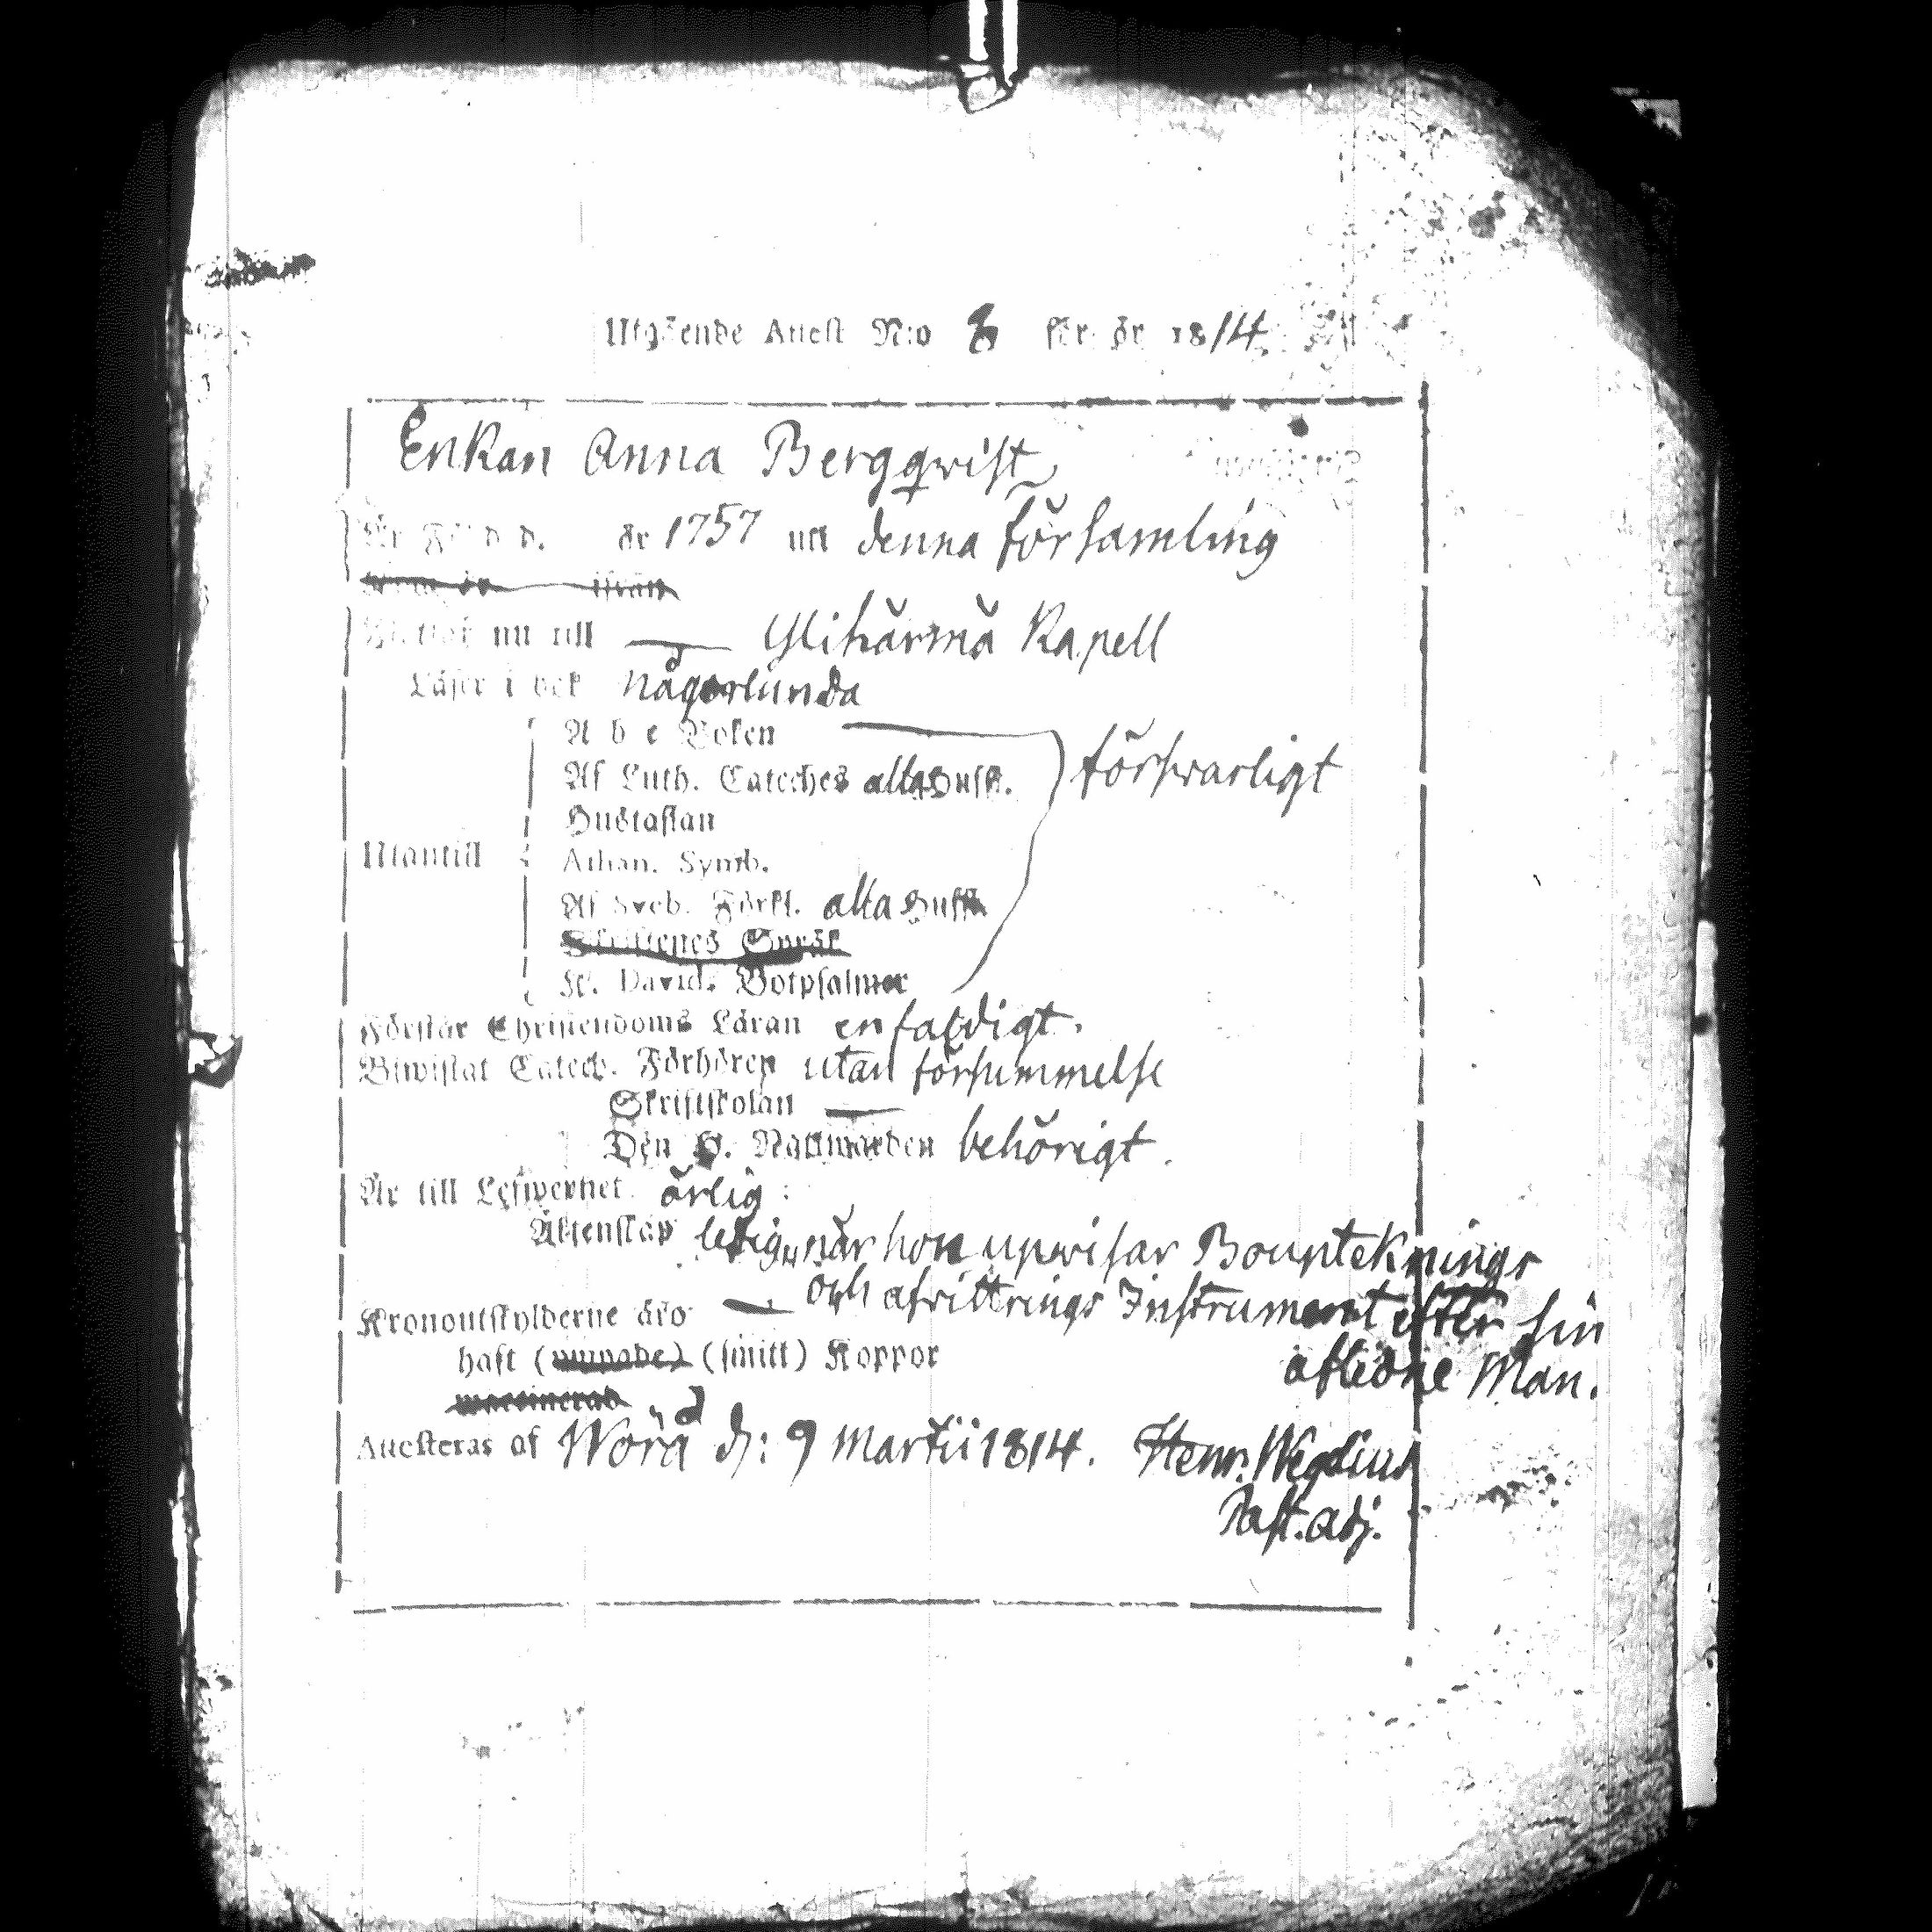 Utgående Attest N:o 8 för år 1814.
Enkan Anna Bergqvist
Är Född d. år 1757 uti denna församling
ifrån
Flyttar nu till — Ylihärmä Kapell
Läser i bok någorlunda
A b c Boken
Af Luth. Cateches alla Hufst. försvarligt
Hustaflan
Utantill Athan. Symb.
Af Sveb. Förkl. alla Hufst.
Skriftenes Språk
K. Davids Botpsalmer
Förstår Christendoms Läran enfaldigt.
Biwistat Catech. Förhören utan försummelse
Skriftskolan —
Den H. Nattwarden behörigt.
Är till Lefwernet ärlig:
Äktenskap ledig, när hon upwisar Bouptecknings
och afvittrings Instrument efter sin
Kronoutskylderne äro —
aflidne Man.
haft (mypade) (smitt) Koppor
waccinerad
Attesteras af Wörå d: 9 Martii 1814. Henr. Wegelius
Past. adj.